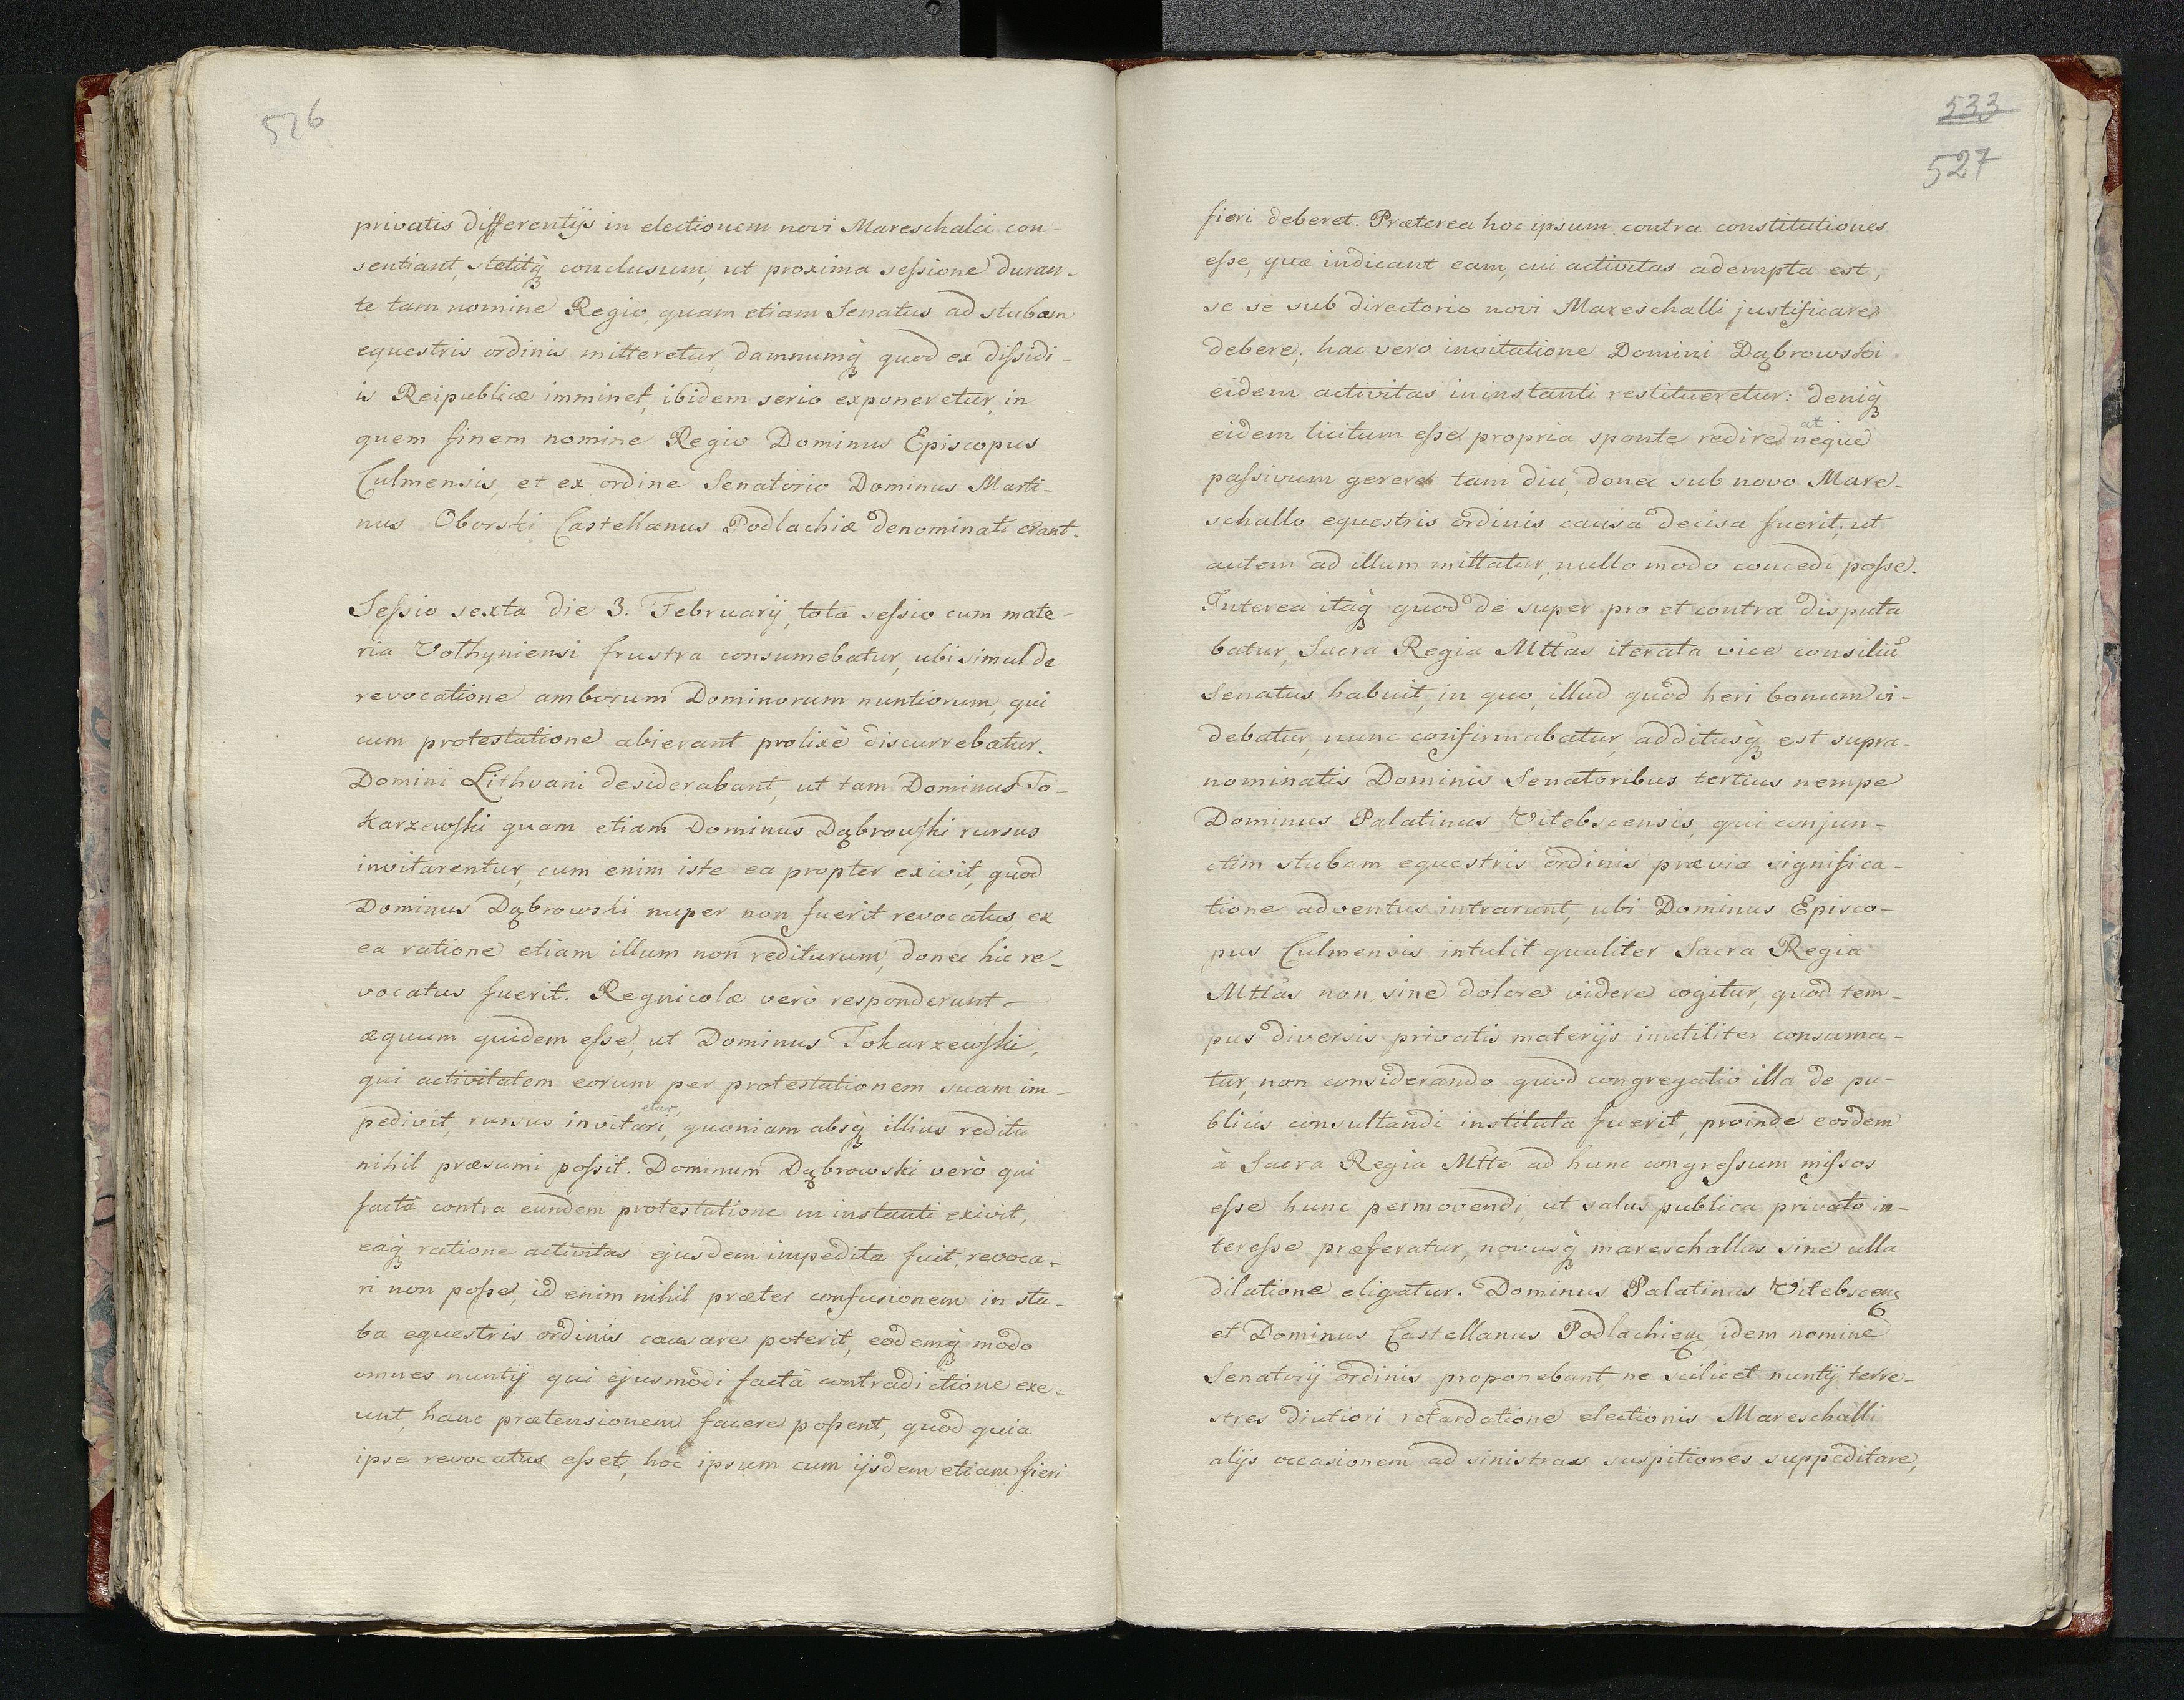 526
privatis differentijs in electionem novi Mareschalci con-
sentiant, stetitq̀ conclusum, ut proxima sessione duran-
te tam nomine Regio, quam etiam Senatus ad stubam
equestris ordinis mitteretur, damnumq̀ quod ex dissidi-
is Reipublicæ imminet, ibidem serio exponeretur, in
quem finem nomine Regio Dominus Episcopus
Culmensis, et ex ordine Senatorio Dominus Marti-
nus Oborski Castellanus Podlachiæ denominati erant.
Sessio sexta die 3. Februarij, tota sessio cum mate-
ria Volhyniensi frustra consumebatur, ubi simul de
revocatione amborum Dominorum nuntiorum, qui
cum protestatione abierant prolixè discurrebatur.
Domini Lithvani desiderabant, ut tam Dominus To-
karzewski quam etiam Dominus Dąbrowski rursus
invitarentur, cum enim iste ea propter exivit, quod
Dominus Dąbrowski nuper non fuerit revocatus, ex
ea ratione etiam illum non rediturum, donec hic re-
vocatus fuerit. Regnicolæ verò responderunt
æquum quidem esse, ut Dominus Tokarzewski,
qui activitatem eorum per protestationem suam im-
etur,
pedivit, rursus invitari, quoniam absq̀ illius reditu
nihil præsumi possit. Dominum Dąbrowski verò qui
factâ contra eundem protestatione in instanti exivit,
eaq̀ ratione activitas ejusdem impedita fuit, revoca-
ri non posse, id enim nihil præter confusionem in stu-
ba equestris ordinis causare poterit, eodemq̀ modo
omnes nuntij qui ejusmodi factâ contradictione exe-
unt, hanc prætensionem facere possent, quod quia
ipse revocatus esset, hoc ipsum cum ijsdem etiam fieri
533
527
fieri deberet. Præterea hoc ipsum contra constitutiones
esse, quæ indicant eam, cui activitas adempta est,
se se sub directorio novi Mareschalli justificare
debere, hac vero invitatione Domini Dąbrowski
eidem activitas in instanti restitueretur: deniq̀
at
eidem licitum esse propria sponte redire neque
passivum gerere tam diu, donec sub novo Mare-
schallo equestris ordinis causa decisa fuerit, ut
autem ad illum mittatur, nullo modo concedi posse.
Interea itaq̀ quod de super pro et contra disputa
batur, Sacra Regia Mttas iterata vice consiliū
Senatus habuit, in quo, illud quod heri bonum vi-
debatur, nunc confirmabatur, additusq̀ est supra-
nominatis Dominis Senatoribus tertius nempe
Dominus Palatinus Vitebscensis, qui conjun-
ctim stubam equestris ordinis prævia significa-
tione adventus intrarunt, ubi Dominus Episco-
pus Culmensis intulit qualiter Sacra Regia
Mttas non sine dolore videre cogitur, quod tem-
pus diversis privatis materijs inutiliter consuma-
tur, non considerando quod congregatio illa de pu-
blicis consultandi instituta fuerit, proinde eosdem
à Sacra Regia Mtte ad hunc congressum missos
esse hunc permovendi, ut salus publica privato in-
teresse præferatur, novusq̀ mareschallus sine ulla
dilatione eligatur. Dominus Palatinus Vitebscens
et Dominus Castellanus Podlachiens idem nomine
Senatorij ordinis proponebant, ne scilicet nuntij terre-
stres diutiori retardatione electionis Mareschalli
alijs occasionem ad sinistras suspitiones suppeditare,